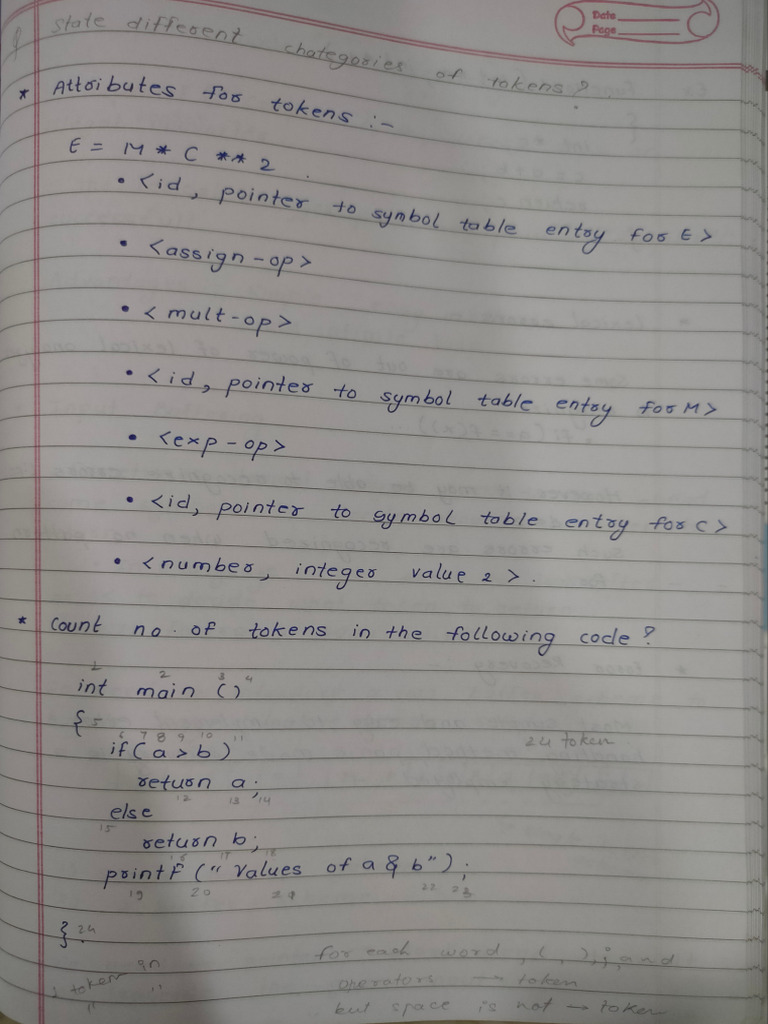 Date
Page
Q State different chategories of tokens?
* Attributes for tokens :-
E = M * C ** 2 .
• <id, pointer to symbol table entry for E>
• <assign-op>
• < mult-op>
• <id, pointer to symbol table entry for M>
• <exp-op>
• <id, pointer to symbol table entry for C>
• <number, integer value 2 > .
* Count no. of tokens in the following code ?
1 2 3 4
int main ()
{ 5
6 7 8 9 10 11
if(a > b)
24 token
return a;
12 13 14
else
15
return b;
16 17 18
printf (" Values of a & b");
19 20 21 22 23
} . 24
for each word , ( , ) ; , and
token
operators → token
but space is not → token